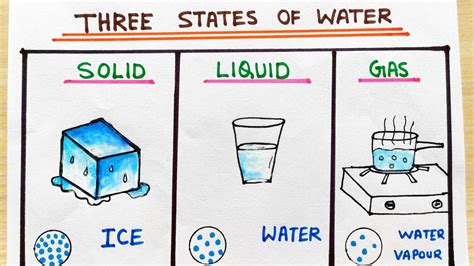 THREE STATES OF WATER
SOLID
LIQUID
GAS
ICE
WATER
WATER
VAPOUR